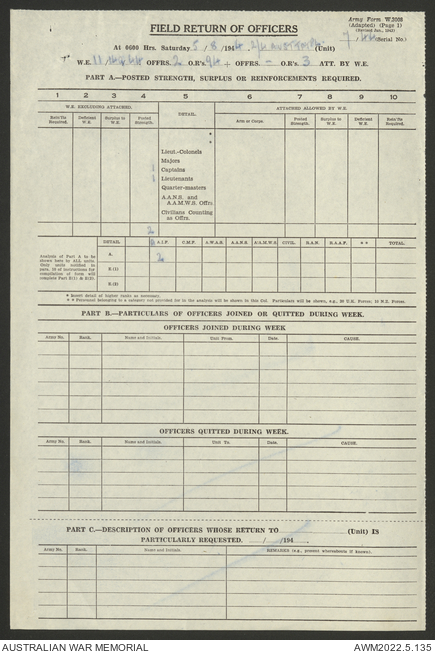 Army Form W.3008
(Adapted) (Page 1)
(Revised Jan., 1943)
FIELD RETURN OF OFFICERS
At 0600 Hrs. Saturday 5/8/194 (Unit) (Serial No.)
W.E. OFFRS. 2 O.R's 94 + OFFRS. - O.R's 3 ATT. BY W.E.
PART A.—POSTED STRENGTH, SURPLUS OR REINFORCEMENTS REQUIRED.
1 2 3 4 5 6 7 8 9 10
W.E. EXCLUDING ATTACHED. DETAIL. ATTACHED ALLOWED BY W.E.
Rein'fts Required. Deficient W.E. Surplus to W.E. Posted Strength. Arm or Corps. Posted Strength. Surplus to W.E. Deficient W.E. Rein'fts Required.
*
*
Lieut.-Colonels
Majors
1 Captains
1 Lieutenants
Quarter-masters
A.A.N.S. and A.A.M.W.S. Offrs.
Civilians Counting as Offrs.
2
Analysis of Part A to be shown here by ALL units. Only units notified in para. 10 of instructions for compilation of form will complete Part E(1) & E(2).
DETAIL. A.I.F. C.M.F. A.W.A.S. A.A.N.S. A.A.M.W.S. CIVIL. R.A.N. R.A.A.F. * * TOTAL.
A. 2
E (1)
E (2)
* Insert detail of higher ranks as necessary.
* * Personnel belonging to a category not provided for in the analysis will be shown in this Col. Particulars will be shown, e.g., 20 U.S. Forces, 10 N.Z. Forces.
PART B.—PARTICULARS OF OFFICERS JOINED OR QUITTED DURING WEEK.
OFFICERS JOINED DURING WEEK
Army No. Rank. Name and Initials. Unit From. Date. CAUSE.
OFFICERS QUITTED DURING WEEK.
Army No. Rank. Name and Initials. Unit To. Date. CAUSE.
PART C.—DESCRIPTION OF OFFICERS WHOSE RETURN TO (Unit) IS
PARTICULARLY REQUESTED. / /194 .
Army No. Rank. Name and Initials. REMARKS (e.g., present whereabouts if known).
AUSTRALIAN WAR MEMORIAL AWM2022.5.135